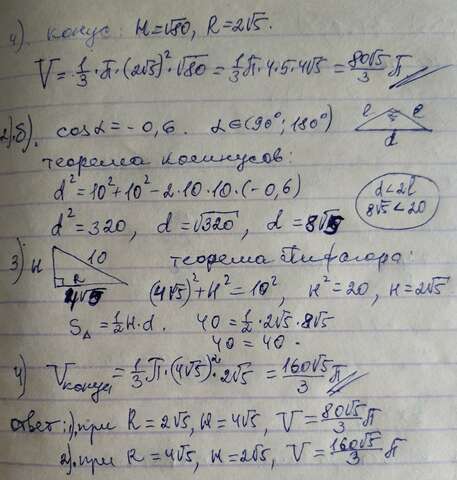 4). конус: H=√80, R=2√5.
V=1/3·π·(2√5)²·√80=1/3π·4·5·4√5=80√5/3 π
2).б). cosα=-0,6. α∈(90°;180°)
l l
d
теорема косинусов:
d²=10²+10²-2·10·10·(-0,6)
d<2l
8√5<20
d²=320, d=√320, d=8√5
3) H 10 теорема Пифагора:
R
4√5 (4√5)²+H²=10², H²=20, H=2√5
S△=1/2H·d. 40=1/2·2√5·8√5
40=40.
4) Vконуса=1/3π·(4√5)²·2√5=160√5/3 π
ответ: 1). при R=2√5, H=4√5, V=80√5/3 π
2). при R=4√5, H=2√5, V=160√5/3 π